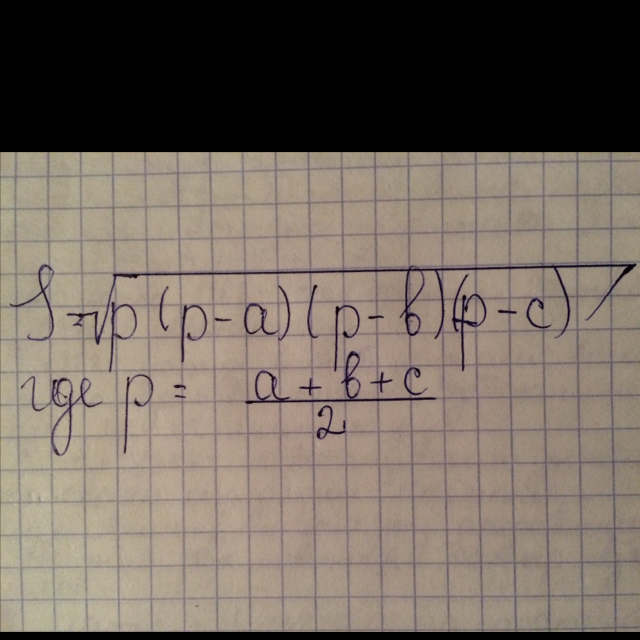 S = √p(p-a)(p-b)(p-c)
где p = a+b+c
2